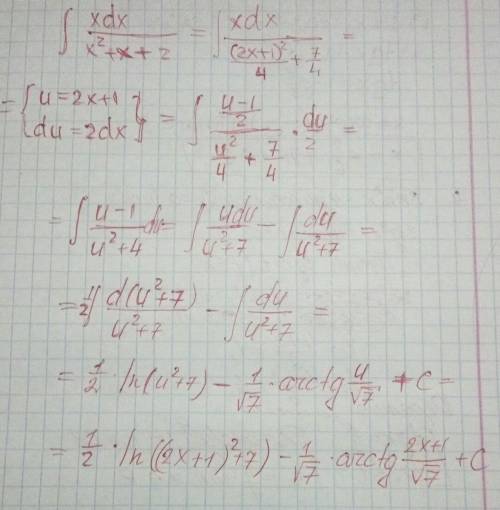 ∫ xdx/(x²+x+2) = ∫ xdx/((2x+1)²/4 + 7/4) =
= {u=2x+1, du=2dx} = ∫ ((u-1)/2)/(u²/4 + 7/4) · du/2 =
= ∫ (u-1)/(u²+4) du = ∫ udu/(u²+7) - ∫ du/(u²+7) =
= 1/2 ∫ d(u²+7)/(u²+7) - ∫ du/(u²+7) =
= 1/2 · ln(u²+7) - 1/√7 · arctg u/√7 + C =
= 1/2 · ln((2x+1)²+7) - 1/√7 · arctg (2x+1)/√7 + C